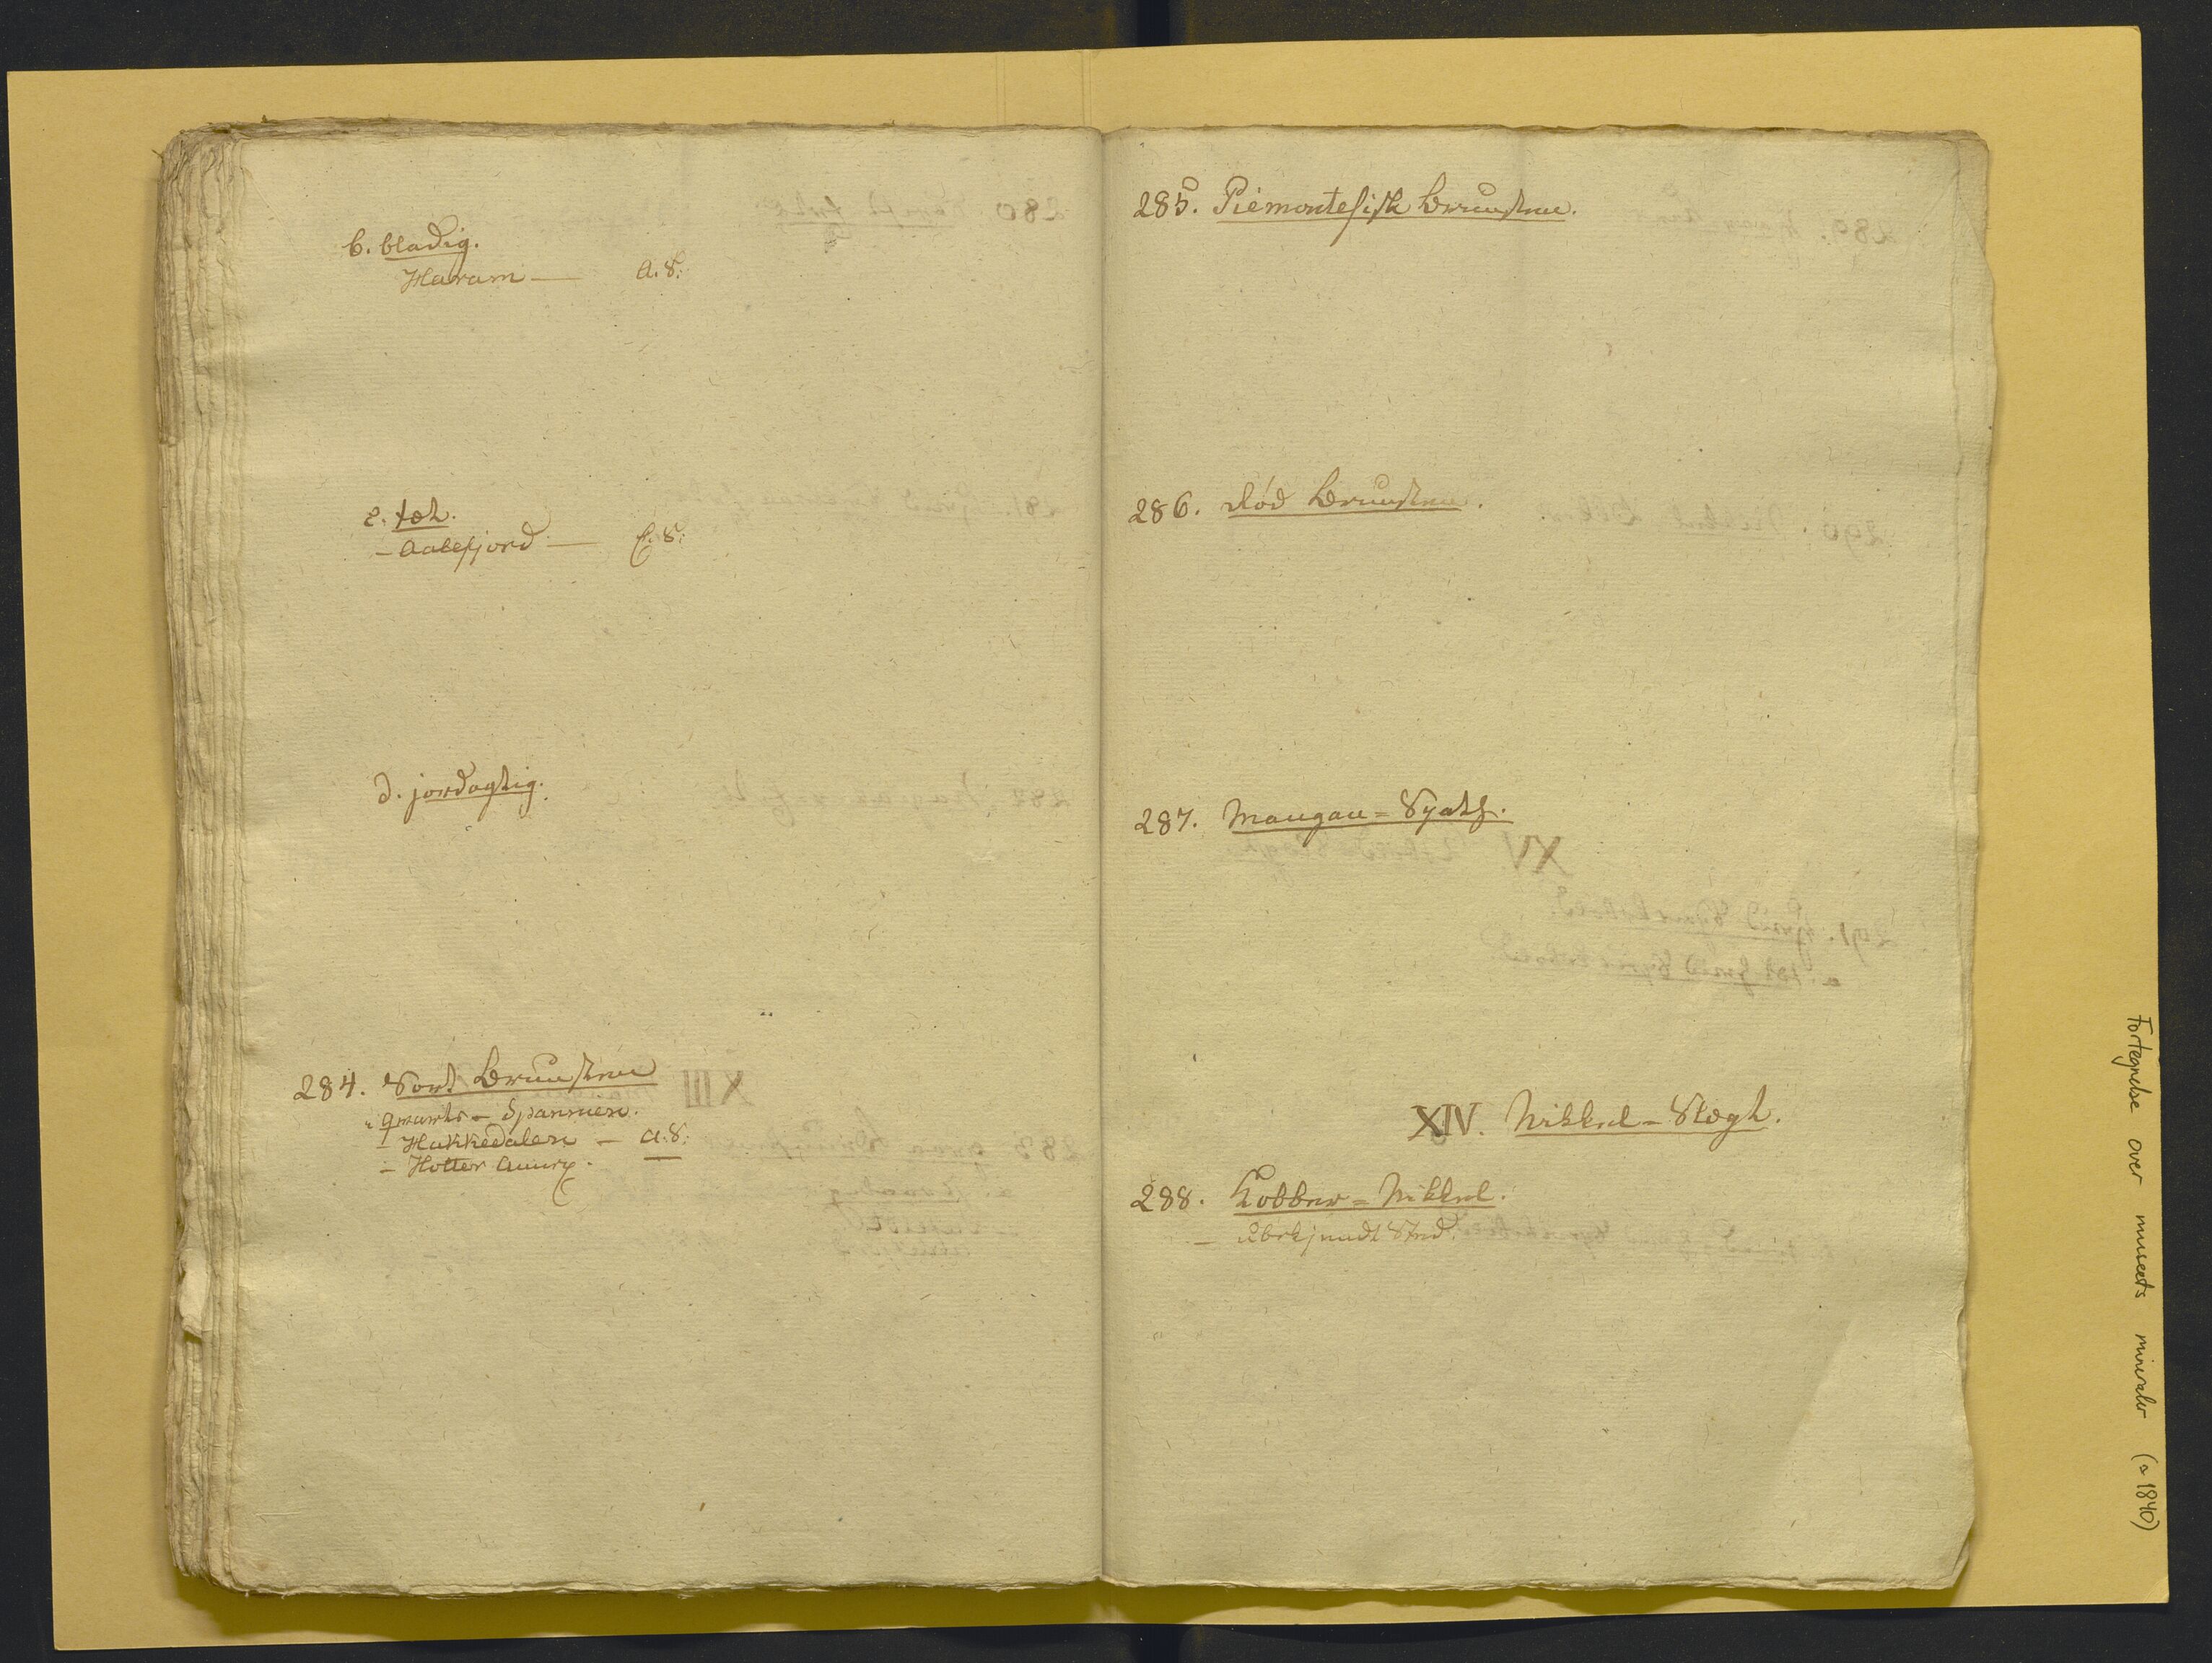 b. bladig.
Haram — A. S:
c. tæt.
– Aalefjord — C. S:
d. jordagtig.
284. Sort Bruunsteen
" qvarts – Spannien.
– Hakkedalen – A. S:
– Hotter
285. Piemontesisk Bruunsteen.
286. Rød Bruunsteen.
287. Mangan = Spath.
XIV. Nikkel = Slægt.
288. Kobber = Nikkel.
– Ubekjendt Sted.
Fortegnelse over museets mineraler (~ 1840)